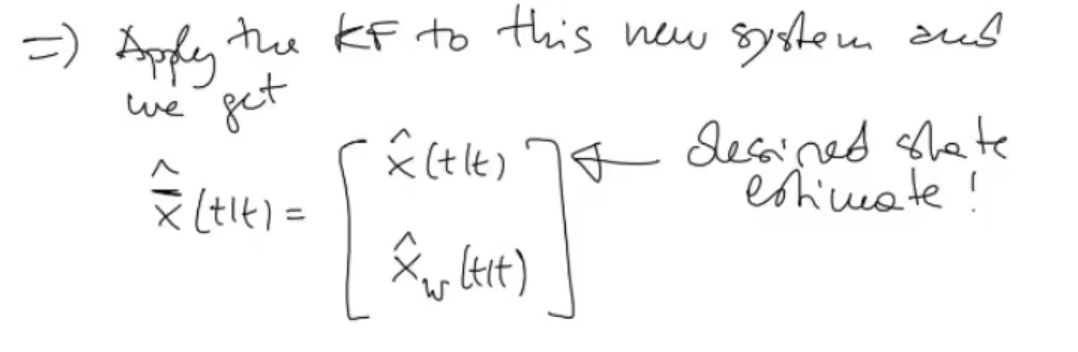 =) Apply the KF to this new system and
we get
x̂̄(t|t) = [ x̂(t|t) ] ← desired state
estimate!
x̂_w(t|t)